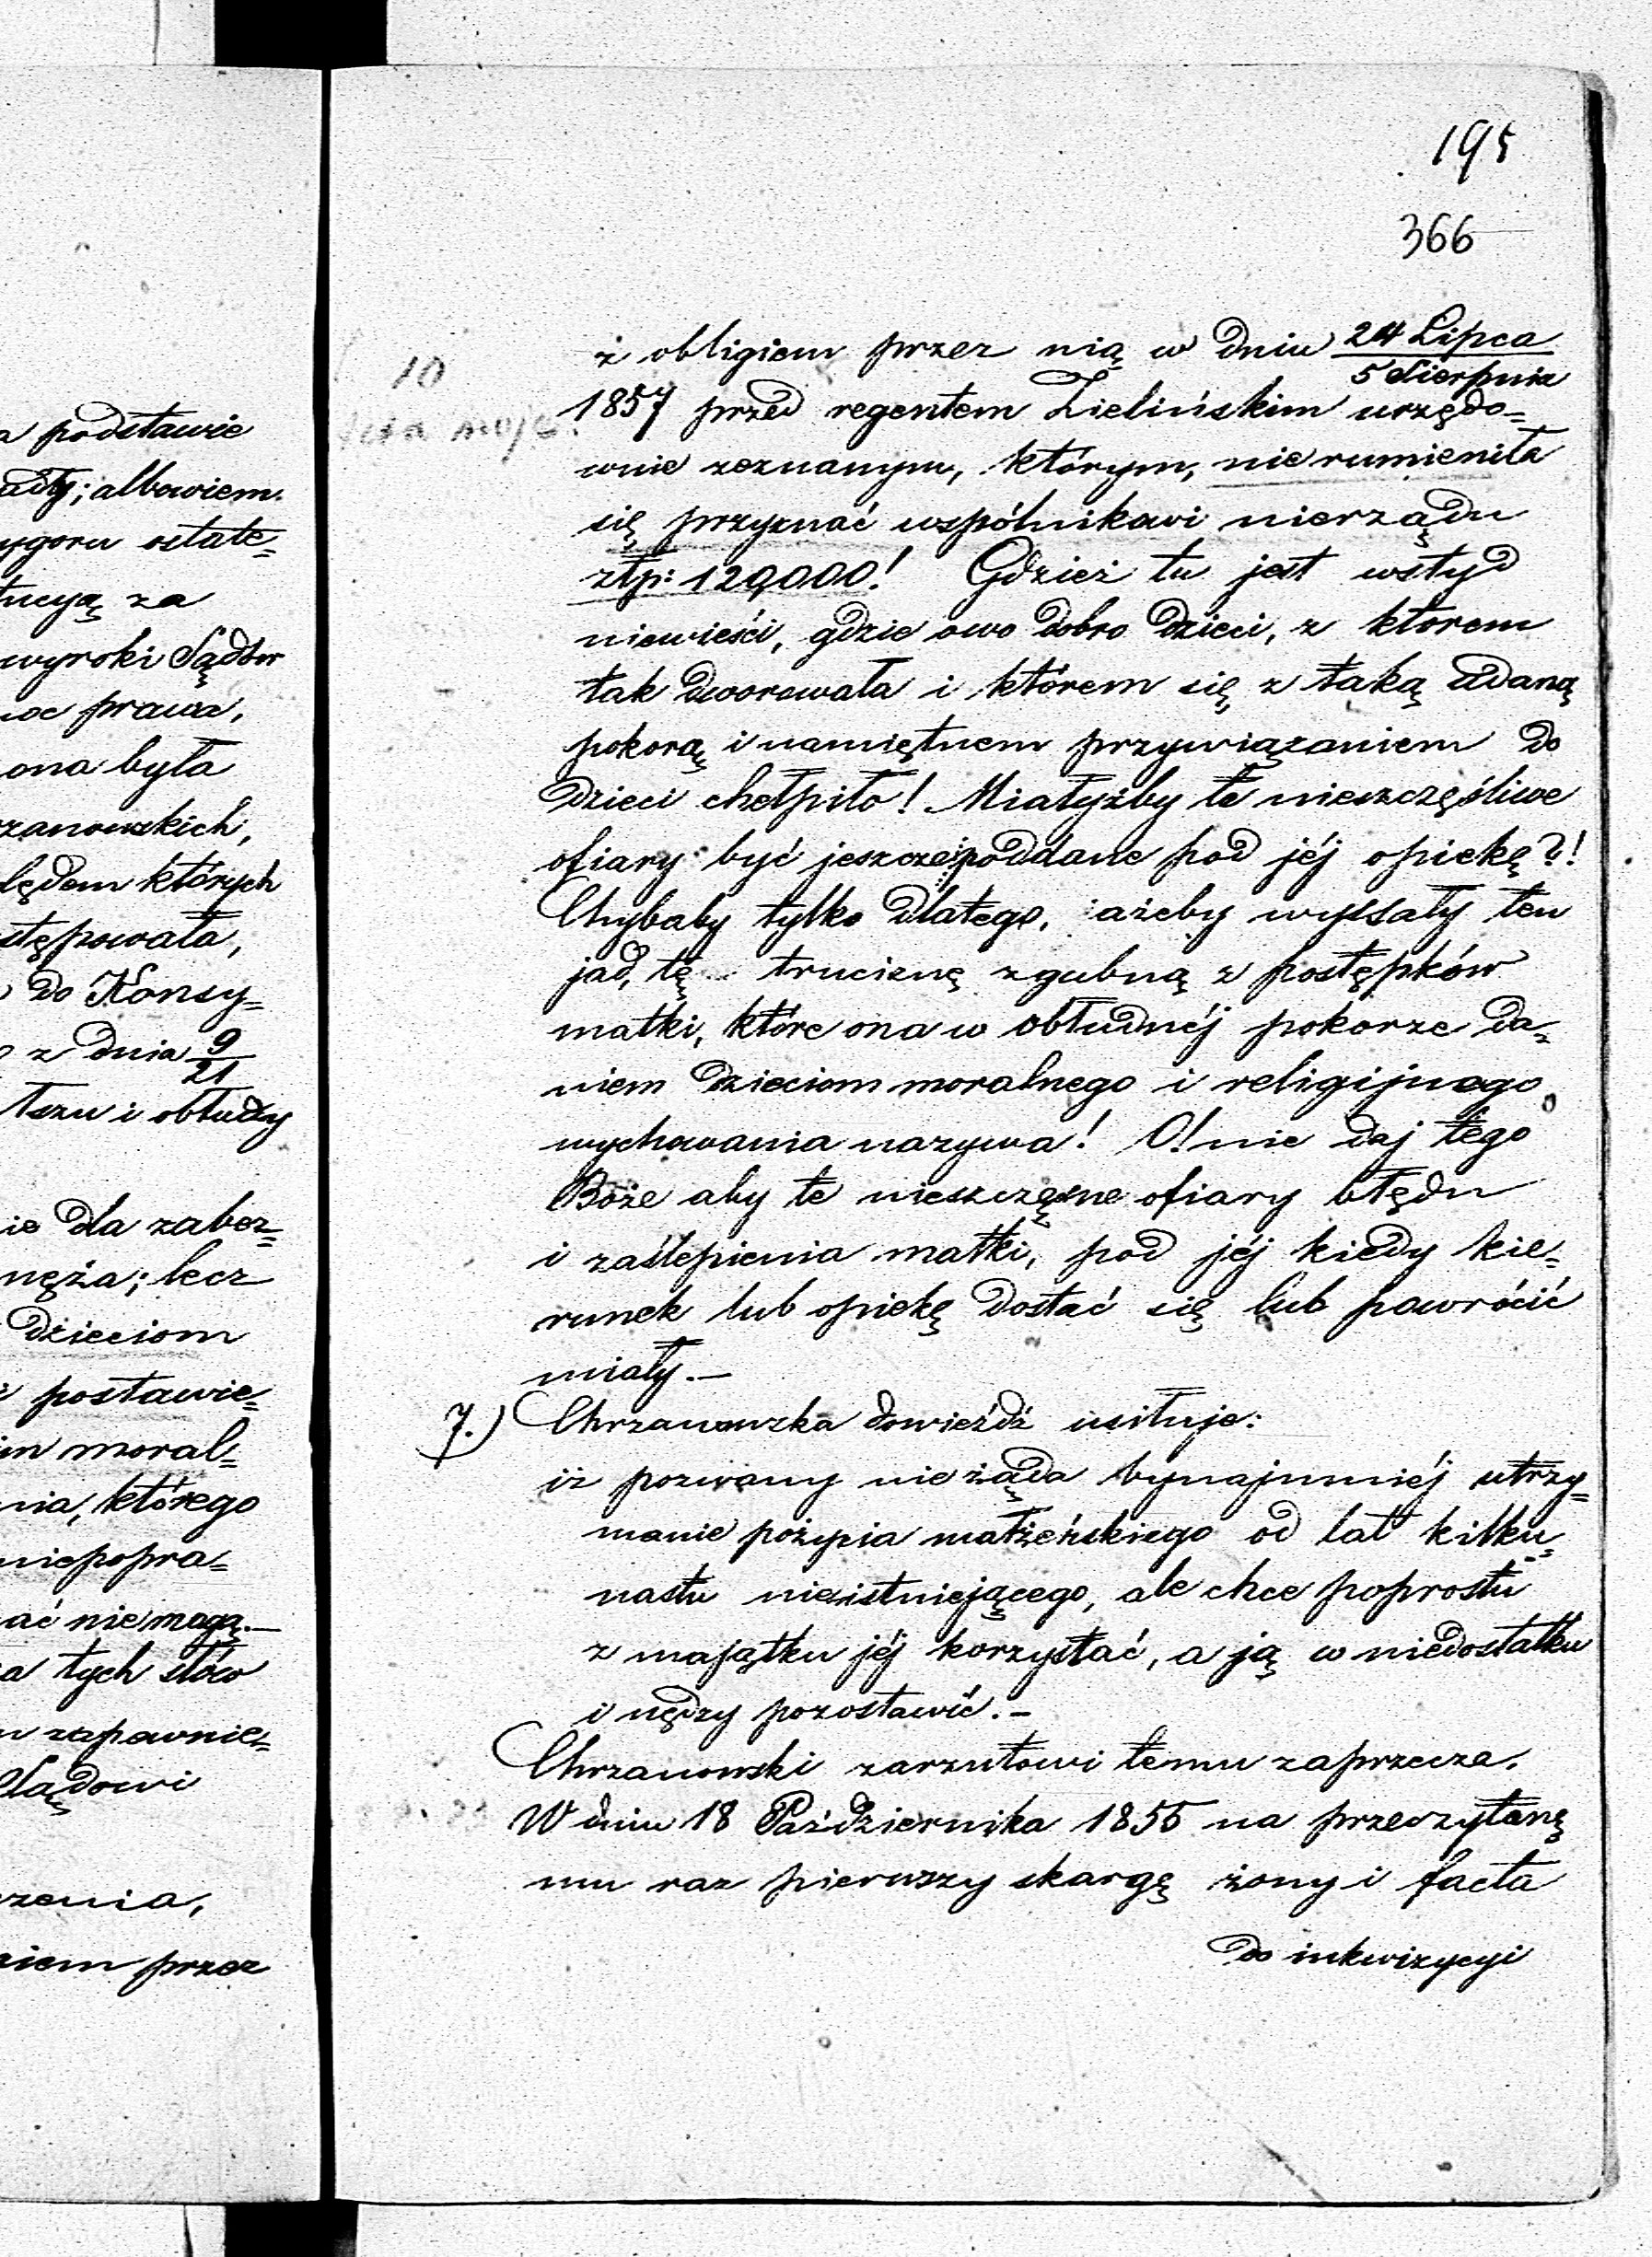 195
366
a podstawie
albowiem
ostate=
za
wyroki Sądów
prawa,
ona była
zanowskich,
lędem których
stępowała,
do Konsy=
z dnia 9/21
i obłudy
ie dla zabez=
męża; lecz
dzieciom
postawie=
moral=
nia, którego
niepopra=
ać nie mogą.—
a tych słów
zapewnie=
Sądowi
zenia,
niem przez
10
z obligiem przez nią w dniu 24 Lipca / 5 Sierpnia
1857 przed regentem Zielińskim urzędo=
wnie zeznanym, którym, nie rumieniła
się przyznać wspólnikowi nierządu
złp: 120,000! Gdzież tu jest wstyd
niewieści, gdzie owo dobro dzieci, z ktorem
tak dworowała i którem się z taką udaną
pokorą i namiętnem przywiązaniem do
dzieci chełpiło! Miałyżby te nieszczęśliwe
ofiary być jeszcze poddane pod jéj opiekę?!
Chybaby tylko dlatego, ażeby wyssały ten
jad, tę truciznę zgubną z postępków
matki, które ona w obłudnéj pokorze da=
niem dzieciom moralnego i religijnego
wychowania nazywa! O! nie daj tego
Boże aby te nieszczęsne ofiary błędu
i zaślepienia matki, pod jéj kiedy kie=
runek lub opiekę dostać się lub powrócić
miały.—
7.) Chrzanowska dowieźdź usiłuje:
iż pozwany nie żąda bynajmniéj utrzy=
manie pożycia małżeńskiego od lat kilku=
nastu nieistniejącego, ale chce poprostu
z majątku jéj korzystać, a ją w niedostatku
i nędzy pozostawić.—
Chrzanowski zarzutowi temu zaprzecza.
W dniu 18 Października 1855 na przeczytaną
mu raz pierwszy skargę żony i facta
do inkwizycyi